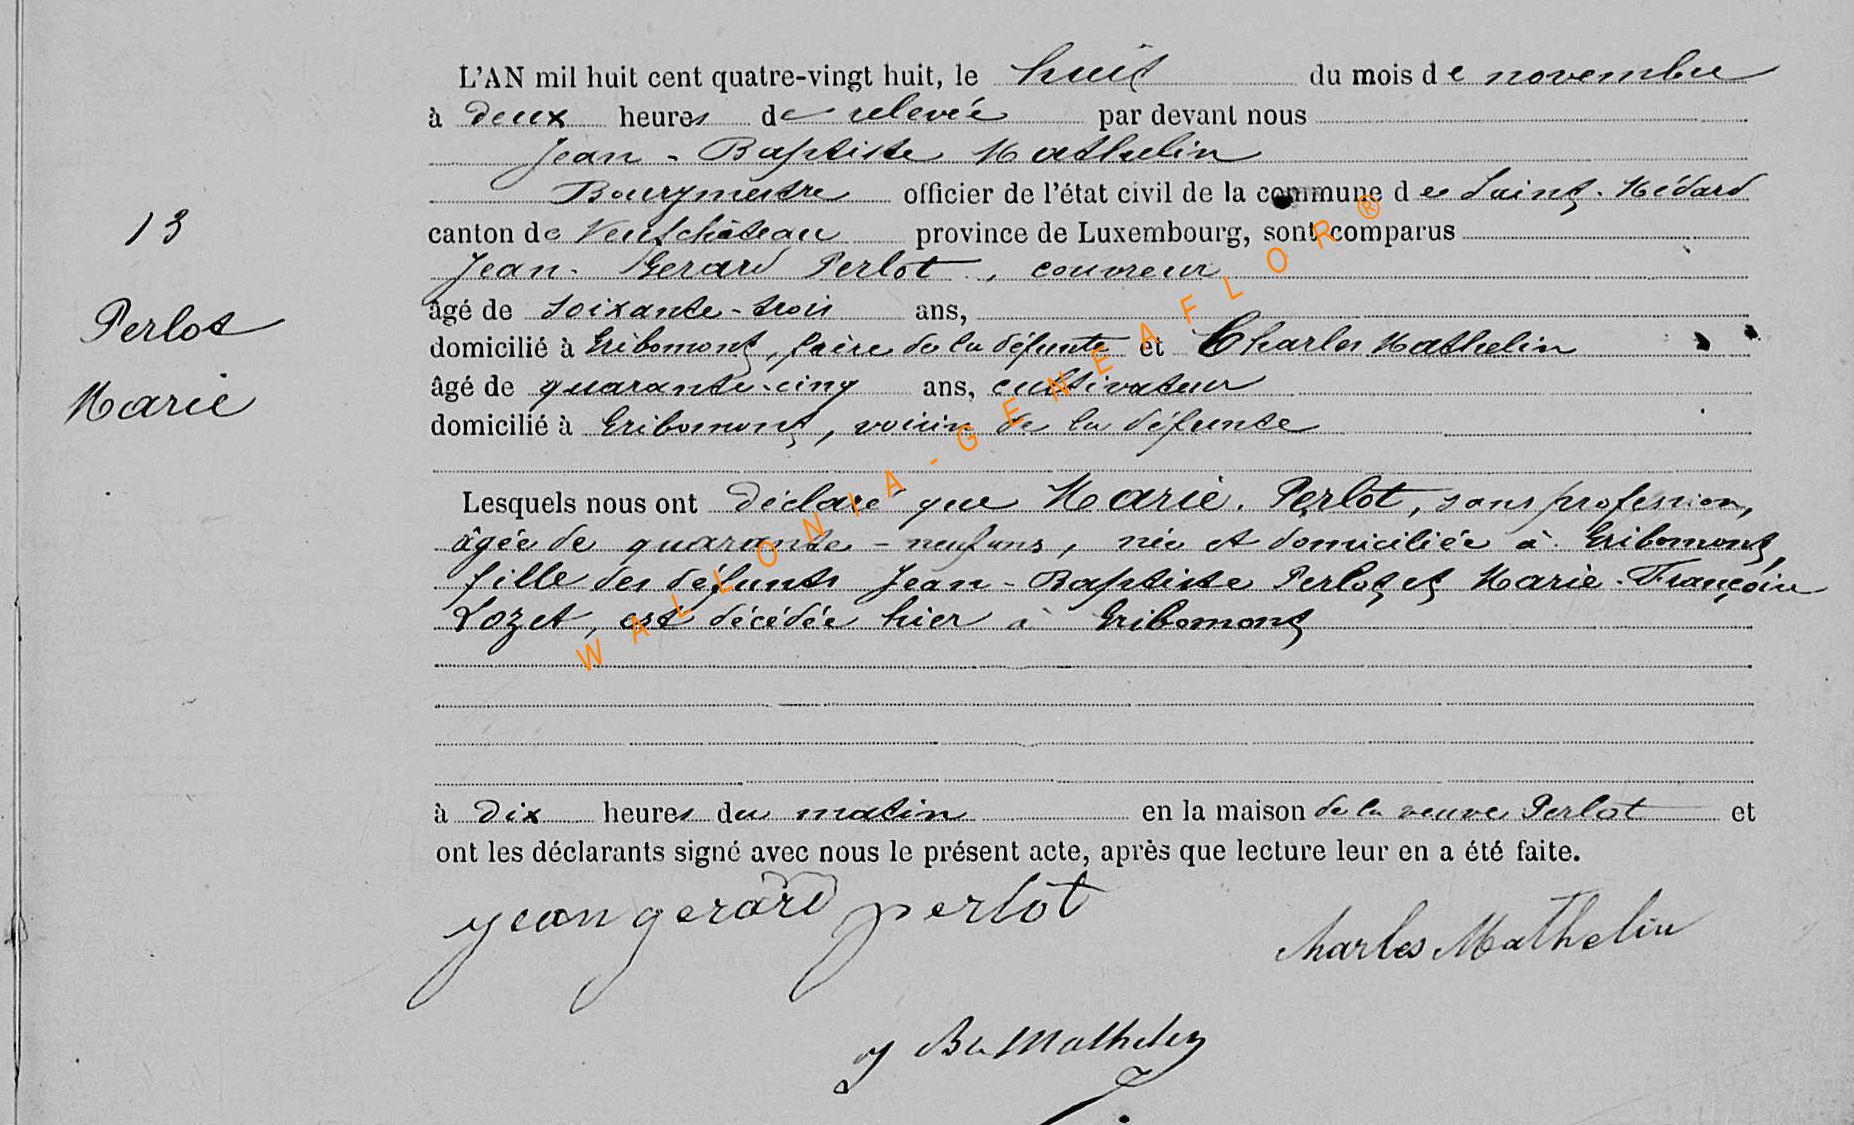 L'AN mil huit cent quatre-vingt huit, le huit du mois de novembre
à deux heures de relevée par devant nous
Jean-Baptiste Mathelin
Bourgmestre officier de l'état civil de la commune de Saint-Médard
13
canton de Neufchâteau province de Luxembourg, sont comparus
Jean-Gerard Perlot, couvreur
Perlot
âgé de soixante-trois ans,
domicilié à Gribomont, frère de la défunte et Charles Mathelin
Marie
âgé de quarante-cinq ans, cultivateur
domicilié à Gribomont, voisin de la défunte
Lesquels nous ont déclaré que Marie Perlot, sans profession,
âgée de quarante-neuf ans, née et domiciliée à Gribomont,
fille des défunts Jean-Baptiste Perlot et Marie-Françoise
Lozet, est décédée hier à Gribomont
WALLONIA-GENEAFLOR®
à dix heures du matin en la maison de la veuve Perlot et
ont les déclarants signé avec nous le présent acte, après que lecture leur en a été faite.
jean gerard perlot
Charles Mathelin
J Bte Mathelin